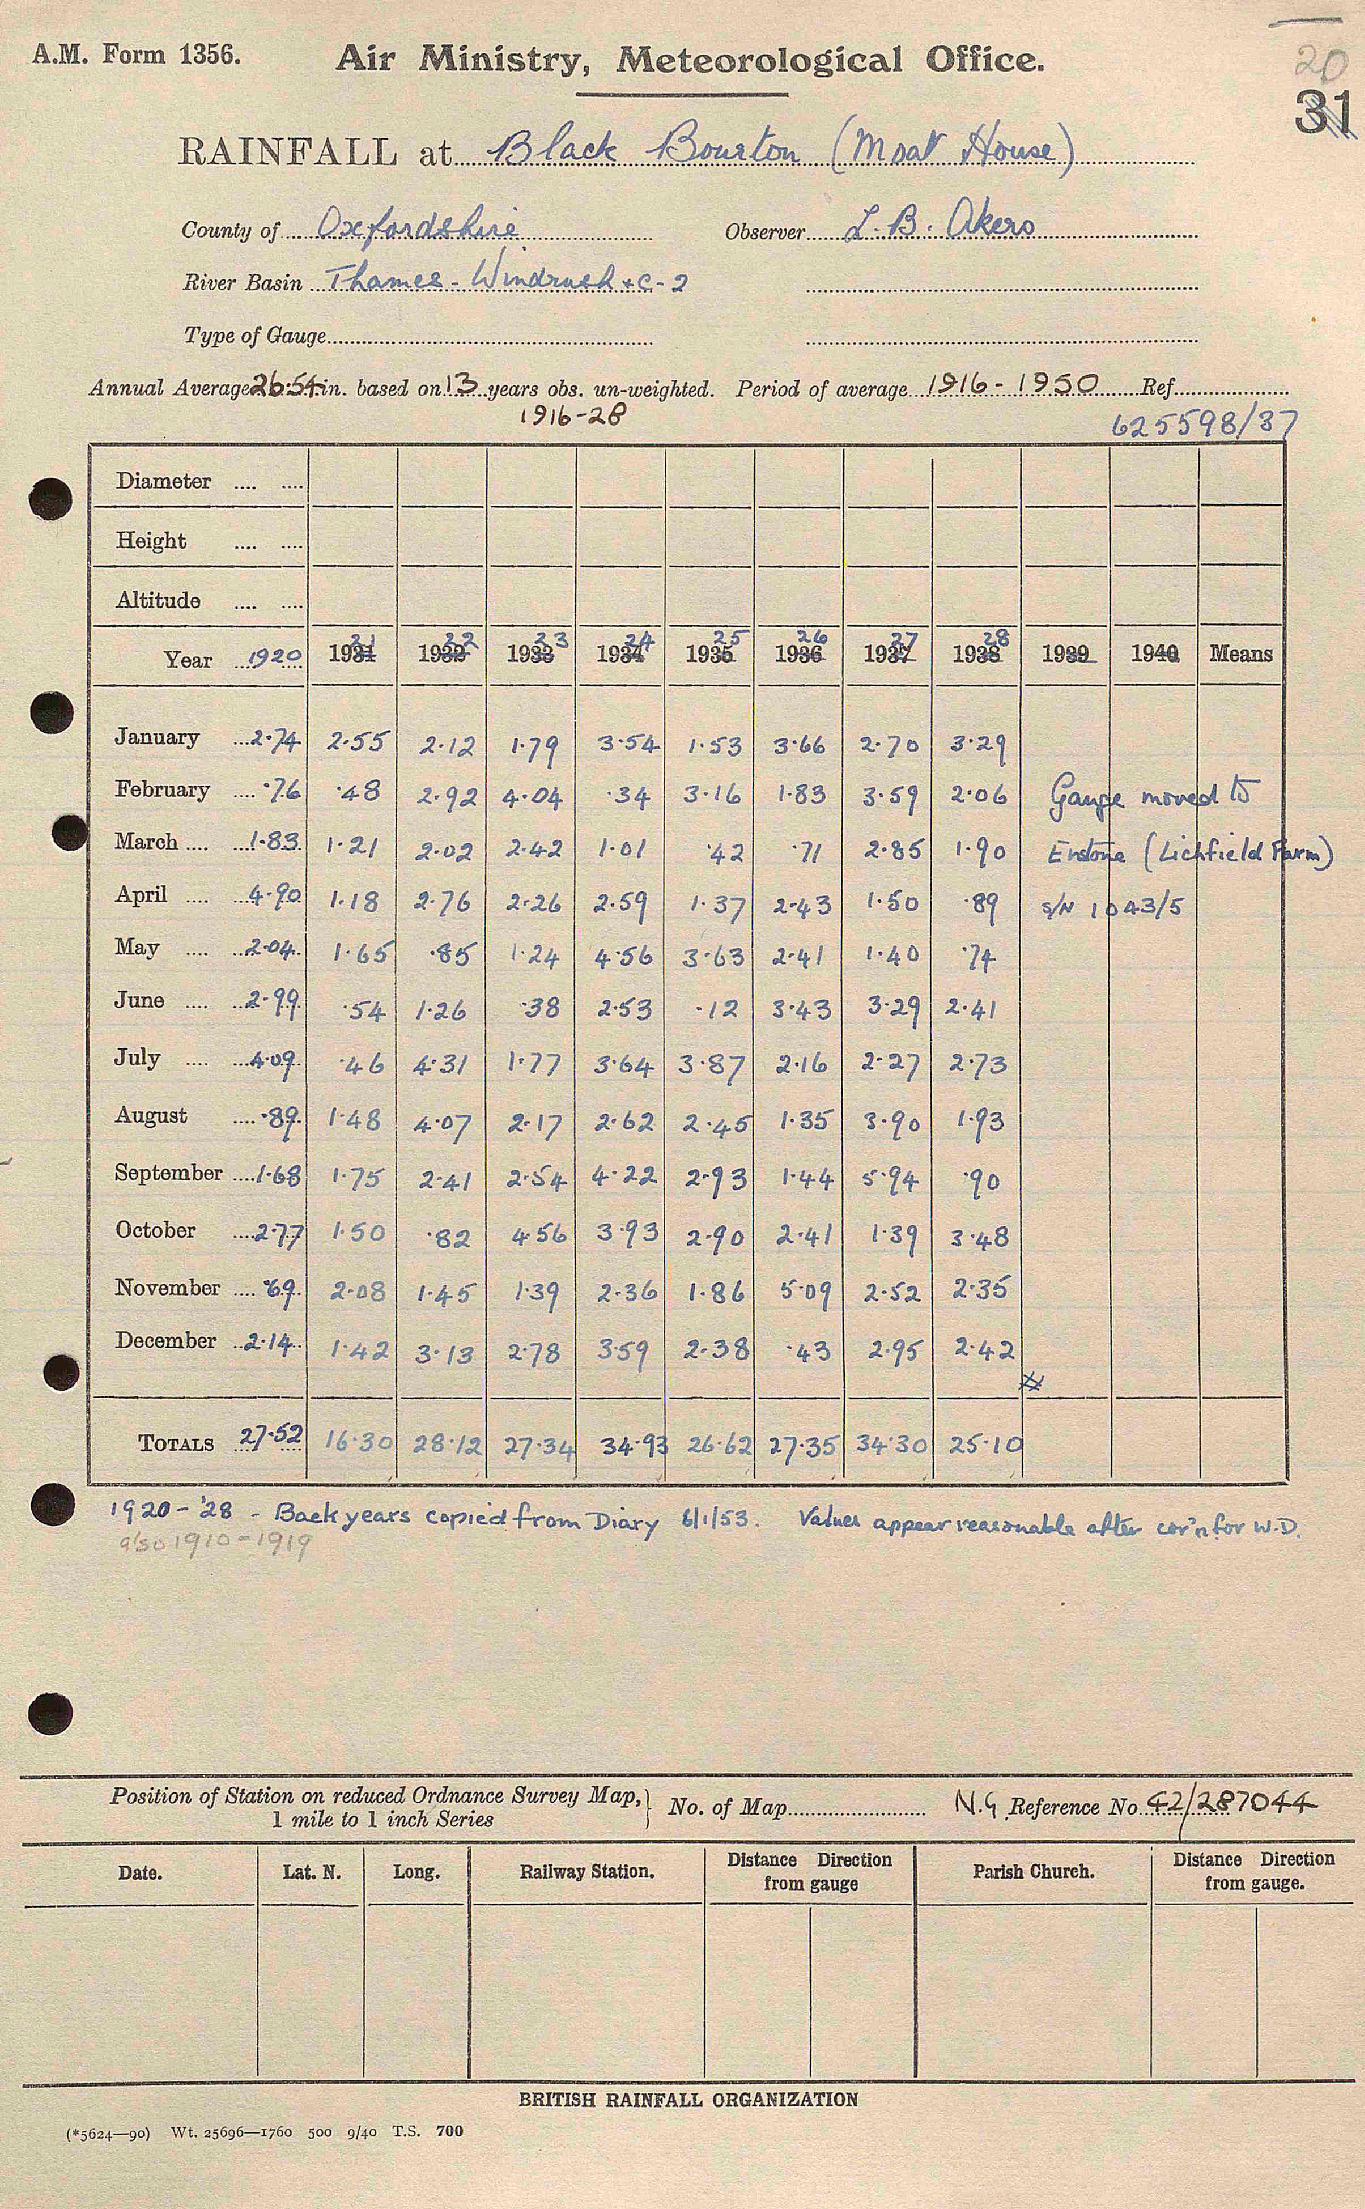 20
A.M. Form 1356. Air Ministry, Meteorological Office.
31
RAINFALL at Black Bourton (Moat House)
County of Oxfordshire Observer L. B. Akers
River Basin Thames - Windrush +c - 2
Type of Gauge
Annual Average 26.54 in. based on 13 years obs. un-weighted. Period of average 1916 - 1950 Ref.
1916-28 625598/37
Diameter .... ....
Height .... ....
Altitude .... ....
21 22 23 24 25 26 27 28
Year 1920 1931 1932 1933 1934 1935 1936 1937 1938 1939 1940 Means
January 2.74 2.55 2.12 1.79 3.54 1.53 3.66 2.70 3.29
February .76 .48 2.92 4.04 .34 3.16 1.83 3.59 2.06 Gauge moved to
March 1.83 1.21 2.02 2.42 1.01 .42 .71 2.85 1.90 Enstone (Lichfield Farm)
April 4.90 1.18 2.76 2.26 2.59 1.37 2.43 1.50 .89 S/N 1043/5
May 2.04 1.65 .85 1.24 4.56 3.63 2.41 1.40 .74
June 2.99 .54 1.26 .38 2.53 .12 3.43 3.29 2.41
July 4.09 .46 4.31 1.77 3.64 3.87 2.16 2.27 2.73
August .89 1.48 4.07 2.17 2.62 2.45 1.35 3.90 1.93
September 1.68 1.75 2.41 2.54 4.22 2.93 1.44 5.94 .90
October 2.77 1.50 .82 4.56 3.93 2.90 2.41 1.39 3.48
November .69 2.08 1.45 1.39 2.36 1.86 5.09 2.52 2.35
December 2.14 1.42 3.13 2.78 3.59 2.38 .43 2.95 2.42
TOTALS 27.52 16.30 28.12 27.34 34.93 26.62 27.35 34.30 25.10
1920 - '28 - Back years copied from Diary 6/1/53. Values appear reasonable after cor'n for W.D.
also 1910 - 1919
Position of Station on reduced Ordnance Survey Map, } No. of Map N.G. Reference No. 42/287044
1 mile to 1 inch Series
Date. Lat. N. Long. Railway Station. Distance Direction from gauge Parish Church. Distance Direction from gauge.
BRITISH RAINFALL ORGANIZATION
(*5624—90) Wt. 25696—1760 500 9/40 T.S. 700